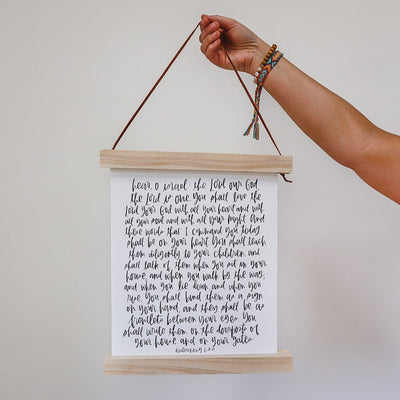 hear, o israel: the Lord our God,
the Lord is one. you shall love the
Lord your God with all your heart and with
all your soul and with all your might. And
these words that I command you today
shall be on your heart. You shall teach
them diligently to your children, and
shall talk of them when you sit in your
house, and when you walk by the way,
and when you lie down, and when you
rise. You shall bind them as a sign
on your hand, and they shall be as
frontlets between your eyes. You
shall write them on the doorposts of
your house and on your gates.
deuteronomy 6:4-9